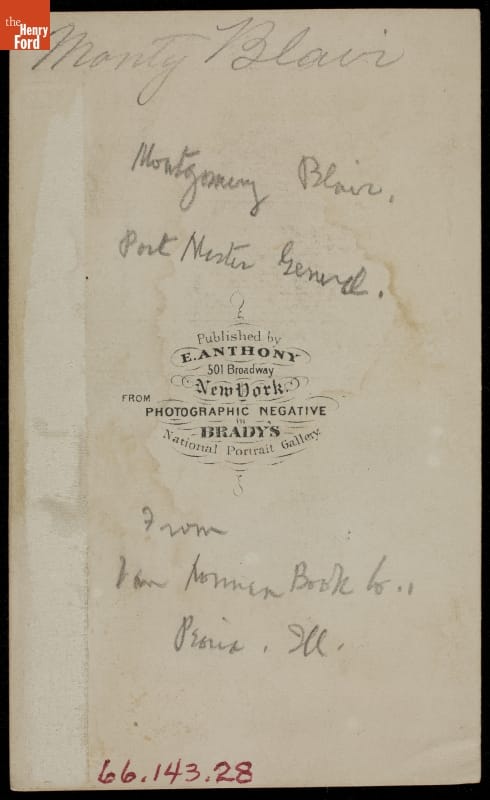 the
Henry
Ford
Monty Blair
Montgomery Blair.
Post Master General.
Published by
E. ANTHONY
501 Broadway
New York.
FROM
PHOTOGRAPHIC NEGATIVE
IN
BRADY'S
National Portrait Gallery.
From
Van Norman Book Co.,
Peoria. Ill.
66.143.28